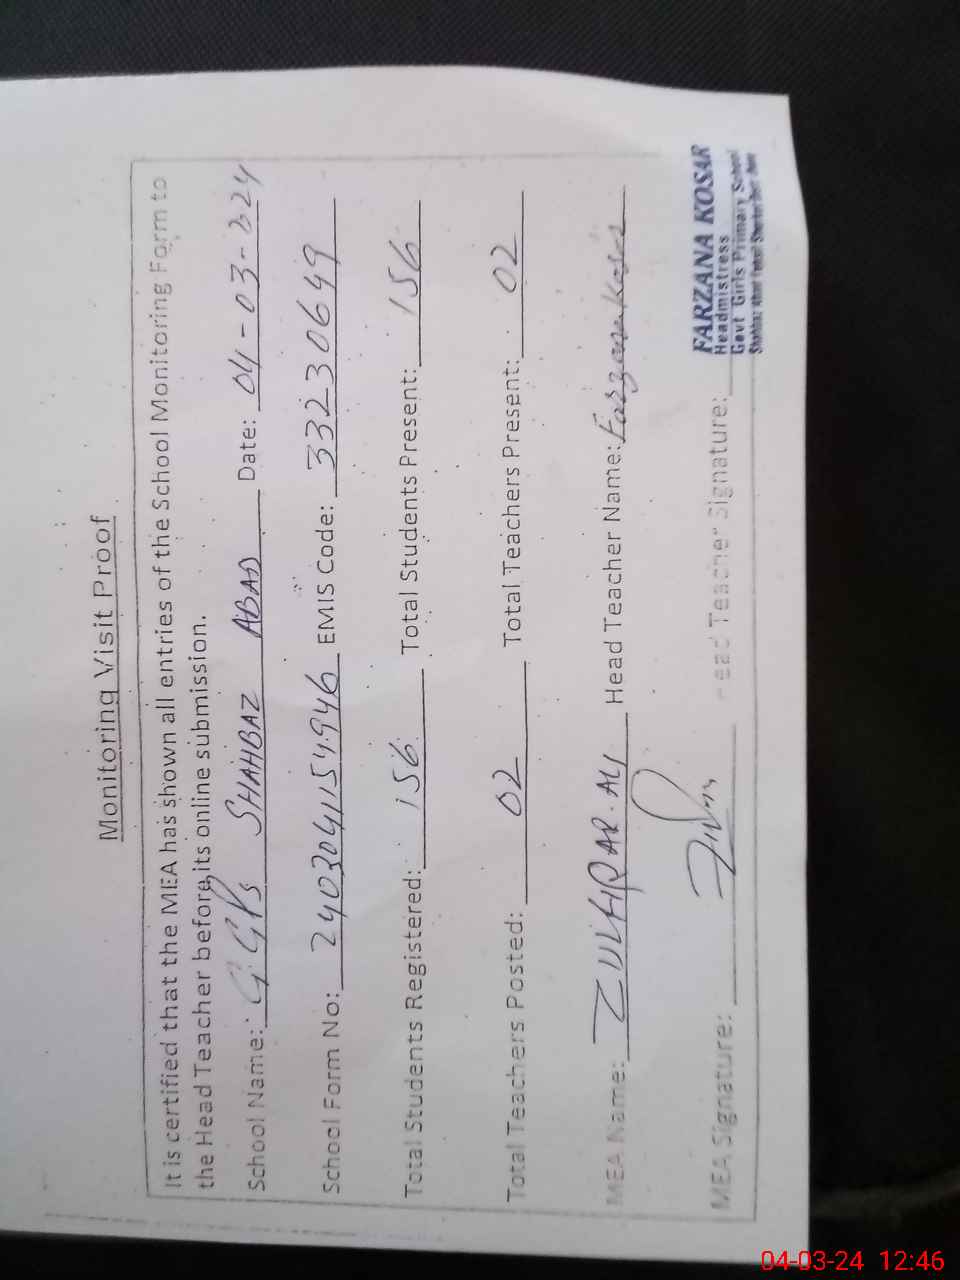 Monitoring Visit Proof
It is certified that the MEA has shown all entries of the School Monitoring Form to
the Head Teacher before its online submission.
School Name: GGPS SHAHBAZ ABAD Date: 04-03-2024
School Form No: 2403041154946 EMIS Code: 33230649
Total Students Registered: 156 Total Students Present: 156
Total Teachers Posted: 02 Total Teachers Present: 02
MEA Name: ZULFIQAR ALI Head Teacher Name: Farzana Kosar
MEA Signature: Head Teacher Signature:
FARZANA KOSAR
Headmistress
Govt Girls Primary School
Shahbaz Abad
04-03-24 12:46